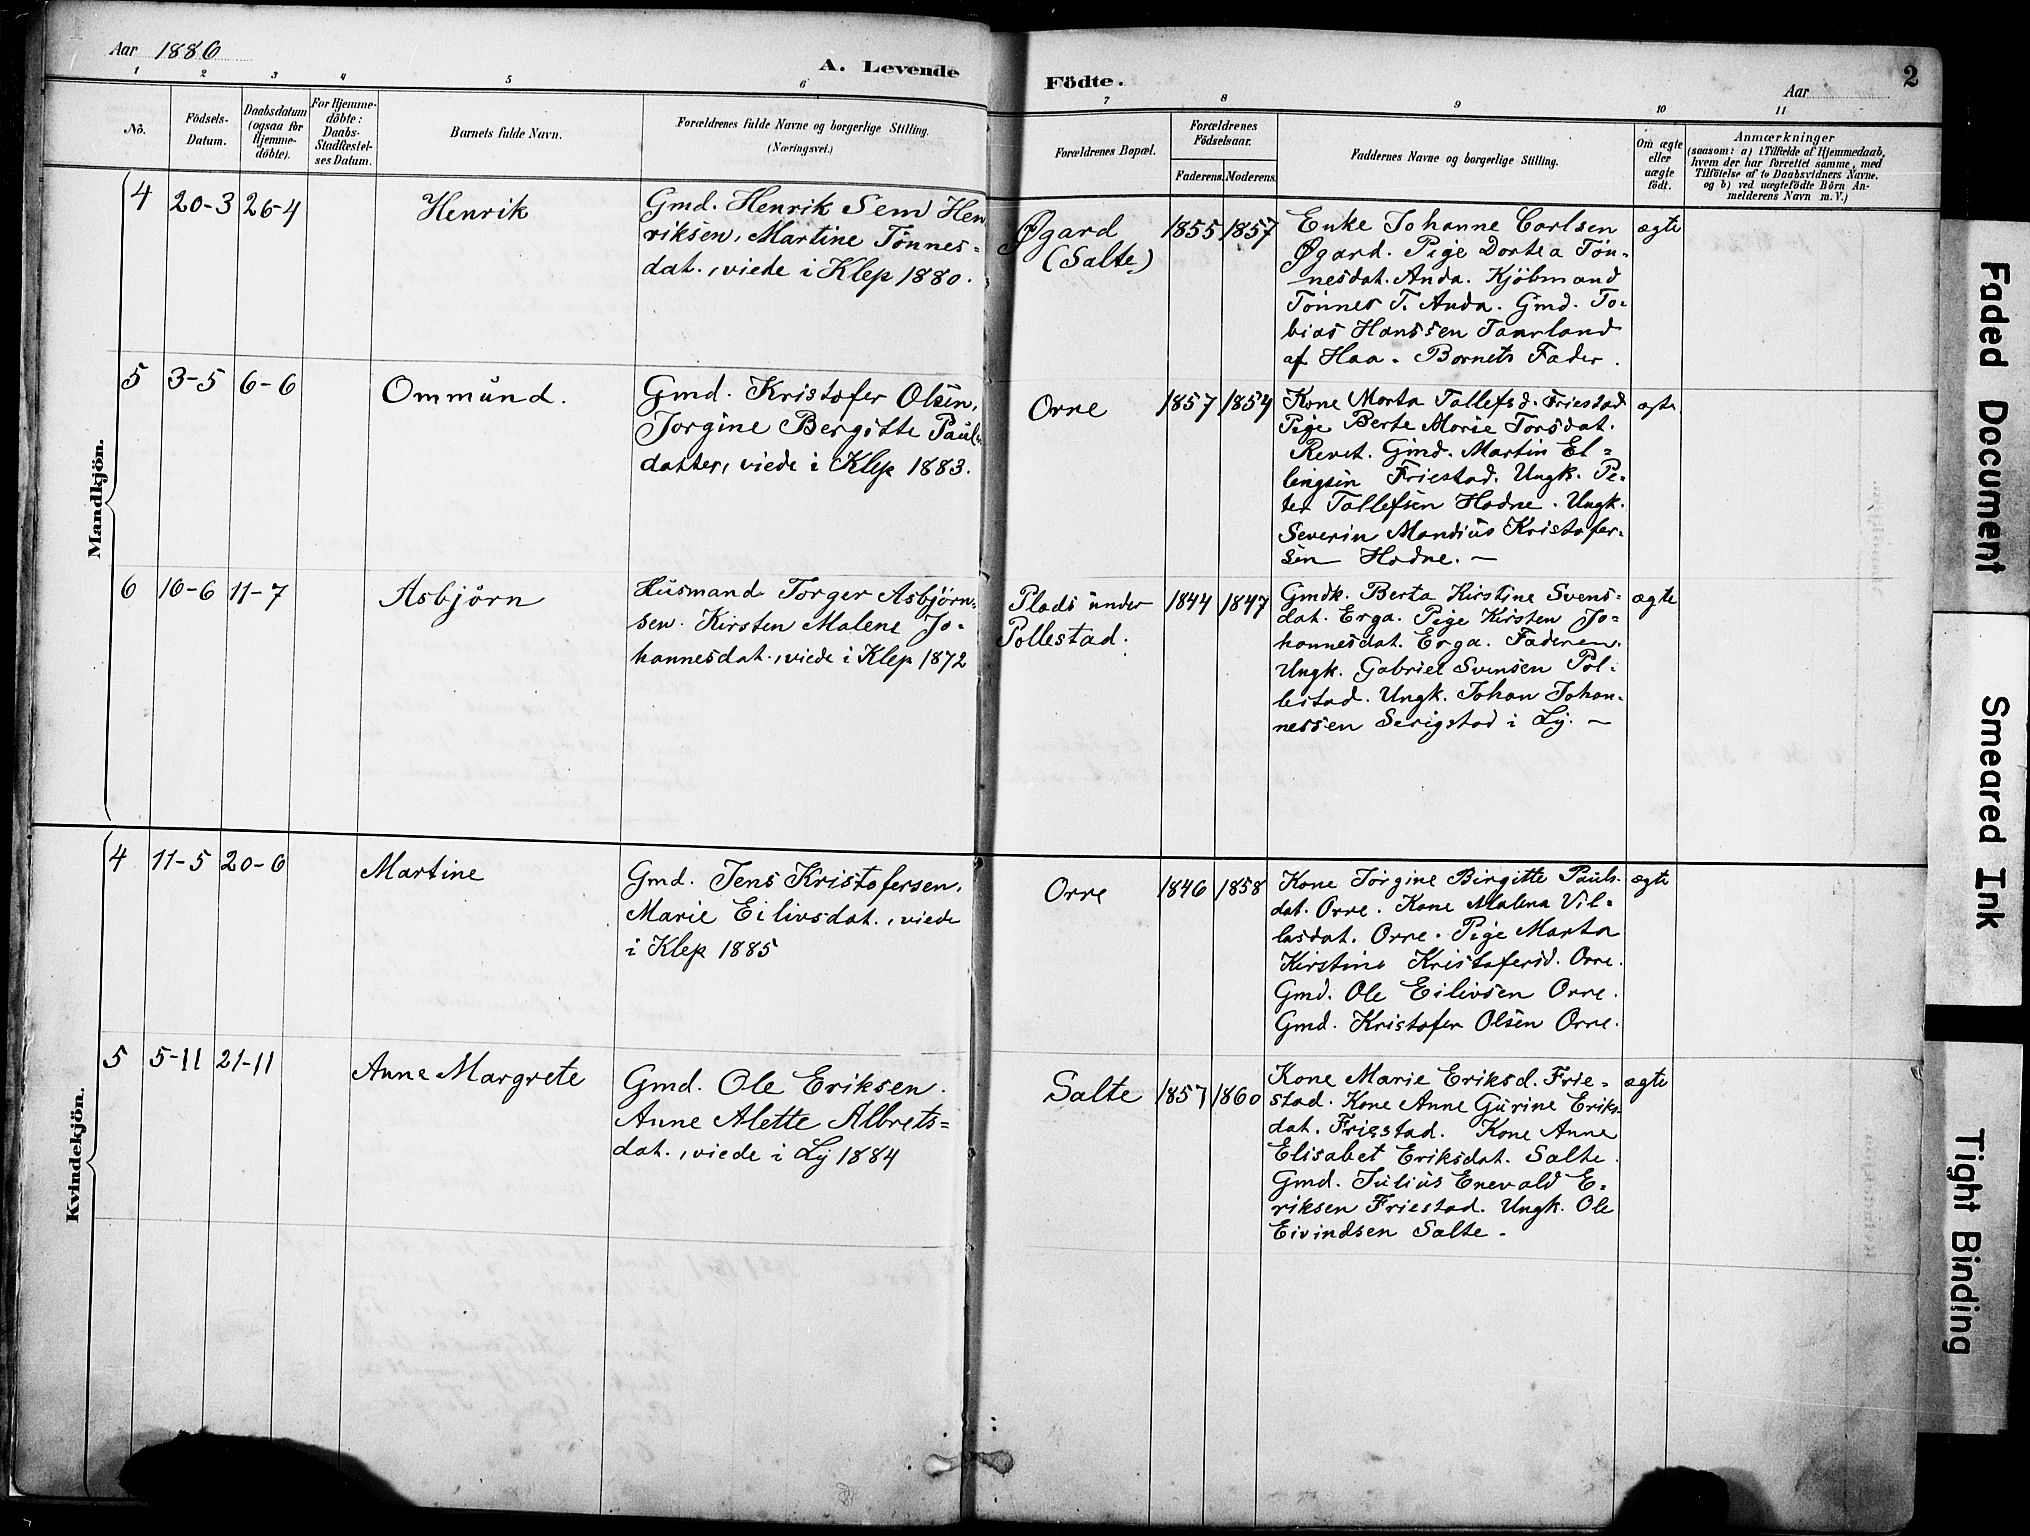 Aar 1886
A. Levende
Födte.
Aar
2
1 2 3 4 5 6 7 8 9 10 11
No.
Födsels-
Datum.
Daabsdatum
(ogsaa for
Hjemme-
döbte).
For Hjemme-
döbte:
Daabs-
Stadfæstel-
ses Datum.
Barnets fulde Navn.
Forældrenes fulde Navne og borgerlige Stilling.
(Næringsvei.)
Forældrenes Bopæl.
Forældrenes
Födselsaar.
Faderens. Moderens.
Faddernes Navne og borgerlige Stilling.
Om ægte
eller
uægte
födt.
Anmærkninger
(saasom: a) i Tilfælde af Hjemmedaab,
hvem der har forrettet samme, med
Tilföielse af to Daabsvidners Navne,
og b) ved uægtefödte Börn An-
melderens Navn m. V.)
Mandkjön.
4 20-3 26-4 Henrik
Gmd. Henrik Sem Hen
riksen, Martine Tønnes=
dat., viede i Klep 1880.
Øgard
(Salte)
1855 1857
Enke Johanne Carlsen
Øgard. Pige Dortea Tøn-
nesdat. Anda. Kjöbmand
Tønnes T. Anda. Gmd. To-
bias Hanssen Taarland
af Haa. Barnets Fader.
ægte
5 3-5 6-6 Ommund.
Gmd. Kristofer Olsen,
Jorgine Bergitte Pauls
datter, viede i Klep 1883.
Orre
1857 1854
Kone Marta Tallefsd. Friestad
Pige Berte Marie Torsdat.
Revet. Gmd. Martin El=
lingsen Friestad. Ungk. Pe-
ter Tallefsen Hodne. Ungk.
Severin Mandius Kristofer-
sen Hodne. —
ægte
6 16-6 11-7 Asbjörn
Husmand Torger Asbjørn-
sen. Kirsten Malene Jo-
hannesdat., viede i Klep 1872
Plads under
Pollestad.
1844 1847
Gmdk. Berta Kirstine Svens-
dat. Erga. Pige Kirsten Jo=
hannesdat. Erga. Faderen.
Ungk. Gabriel Svensen Pol-
lestad. Ungk. Johan Johan-
nessen Serigstad i Ly. —
ægte
Kvindekjön.
4 11-5 20-6 Martine
Gmd. Jens Kristofersen,
Marie Eilivsdat., viede
i Klep 1885
Orre
1846 1858
Kone Jörgine Birgitte Pauls-
dat. Orre. Kone Malena Vil=
lasdat. Orre. Pige Marta
Kirstine Kristofersd. Orre.
Gmd. Ole Eilivsen Orre.
Gmd. Kristofer Olsen Orre.
ægte
5 5-11 21-11 Anne Margrete
Gmd. Ole Eriksen.
Anne Alette Albrets=
dat., viede i Ly 1884
Salte
1857 1860
Kone Marie Eriksd. Frie-
stad. Kone Anne Gurine Eriks-
dat. Friestad. Kone Anne
Elisabet Eriksdat. Salte.
Gmd. Julius Enevald E-
riksen Friestad. Ungk. Ole
Eivindsen Salte.
ægte
Faded Document
Smeared Ink
Tight Binding